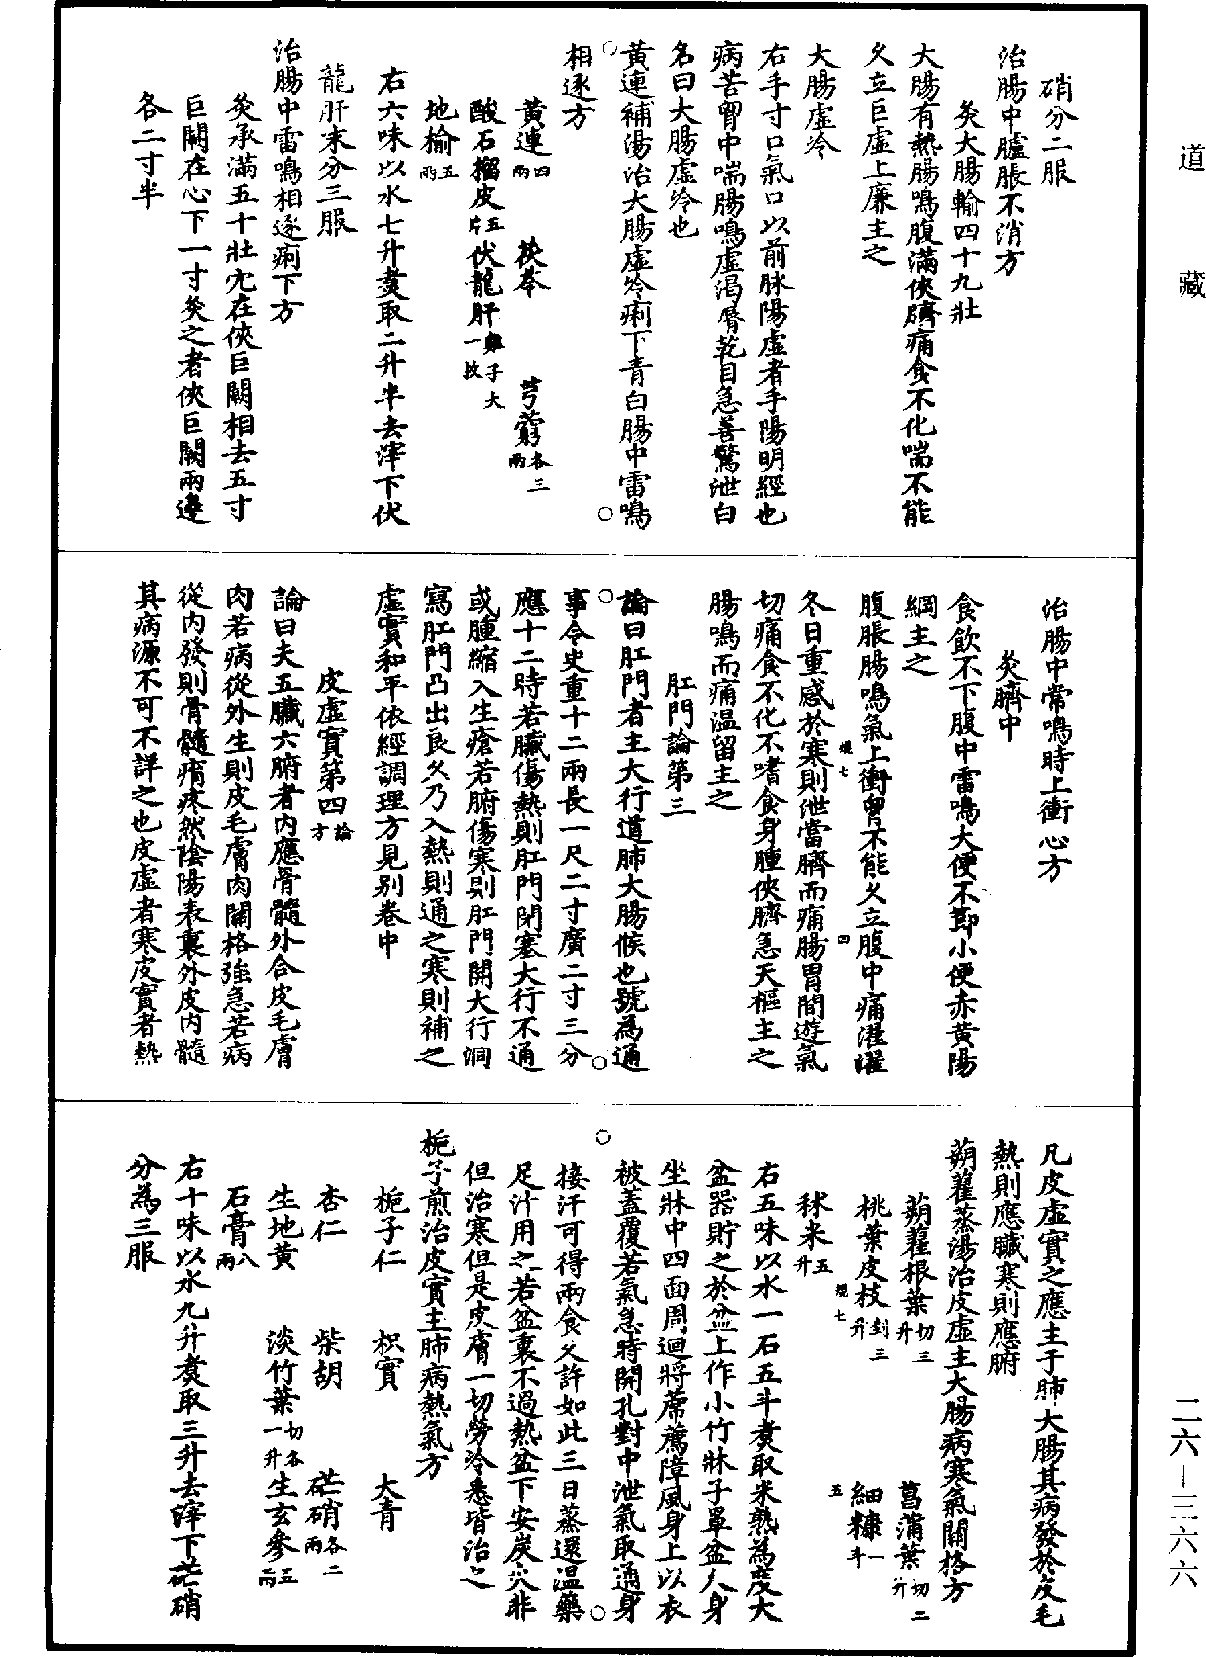 道藏
硝分二服
治腸中臚脹不消方
灸大腸輸四十九壯
大腸有熱腸鳴腹滿俠臍痛食不化喘不能
久立巨虛上廉主之
大腸虛冷
右手寸口氣口以前脉陽虛者手陽明經也
病苦胷中喘腸鳴虛渴脣乾目急善驚泄白
名曰大腸虛冷也
黃連補湯治大腸虛冷痢下青白腸中雷鳴
相逐方
黃連四兩 茯苓 芎藭各三兩
酸石榴皮五片 伏龍肝雞子大一枚
地榆五兩
右六味以水七升煑取二升半去滓下伏
龍肝末分三服
治腸中雷鳴相逐痢下方
灸承滿五十壯穴在俠巨闕相去五寸
巨闕在心下一寸灸之者俠巨闕兩邊
各二寸半
治腸中常鳴時上衝心方
灸臍中
食飲不下腹中雷鳴大便不節小便赤黃陽
綱主之
腹脹腸鳴氣上衝胷不能久立腹中痛濯濯
冬日重感於寒則泄當臍而痛腸胃間遊氣
切痛食不化不嗜食身腫俠臍急天樞主之
腸鳴而痛溫留主之
肛門論第三
論曰肛門者主大行道肺大腸候也號為通
事令史重十二兩長一尺二寸廣二寸三分
應十二時若臟傷熱則肛門閉塞大行不通
或腫縮入生瘡若腑傷寒則肛門開大行洞
寫肛門凸出良久乃入熱則通之寒則補之
虛實和平依經調理方見別卷中
皮虛實第四論方
論曰夫五臟六腑者內應骨髓外合皮毛膚
肉若病從外生則皮毛膚肉關格強急若病
從內發則骨髓痟疼然陰陽表裏外皮內髓
其病源不可不詳之也皮虛者寒皮實者熱
凡皮虛實之應主于肺大腸其病發於皮毛
熱則應臟寒則應腑
蒴藋蒸湯治皮虛主大腸病寒氣關格方
蒴藋根葉切三升 菖蒲葉切二升
桃葉皮枝剉三升 細糠一斗
秫米五升
右五味以水一石五斗煑取米熟為度大
盆器貯之於盆上作小竹牀子罩盆人身
坐牀中四面周迴將席薦障風身上以衣
被蓋覆若氣急時開孔對中泄氣取通身
接汗可得兩食久許如此三日蒸還溫藥
足汁用之若盆裏不過熱盆下安炭火非
但治寒但是皮膚一切勞冷悉皆治之
梔子煎治皮實主肺病熱氣方
梔子仁 枳實 大青
杏仁 柴胡 芒硝各二兩
生地黃 淡竹葉切各一升 生玄參五兩
石膏八兩
右十味以水九升煑取三升去滓下芒硝
分為三服
二六－三六六